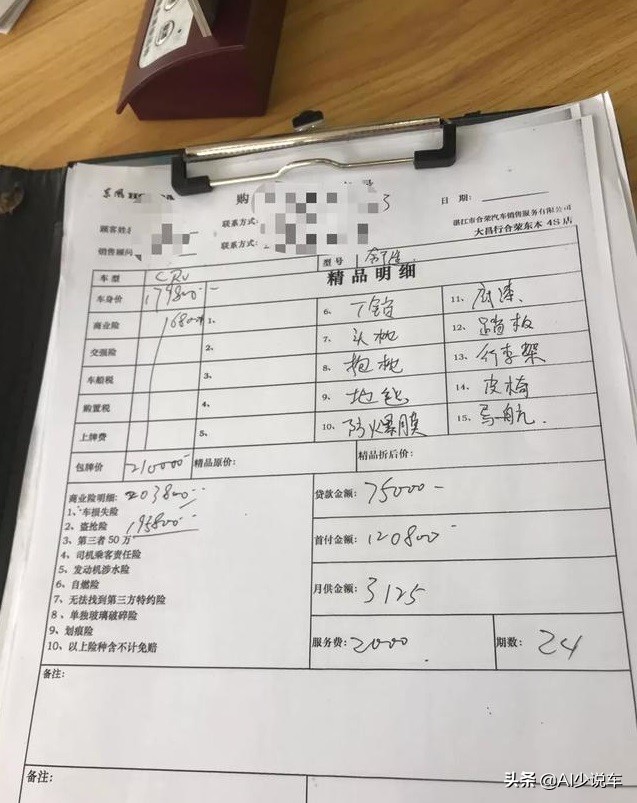 东风HONDA 购
顾客姓 联系方式: 3 日 期:
销售顾问 联系方式: 湛江市合荣汽车销售服务有限公司
大昌行合荣东本 4S 店
车 型 CRV 型 号
精品明细
车身价 179800-
商业险 1、
交强险 2、
车船税 3、
购置税 4、
上牌费 5、
6、
7、头枕
8、抱枕
9、地毯
10、防爆膜
11、底漆
12、踏板
13、行李架
14、皮椅
15、导航
包牌价 210000 精品原价: 精品折后价:
商业险明细: 203800
1、车损失险
2、盗抢险 195800
3、第三者 50 万
4、司机乘客责任险
5、发动机涉水险
6、自燃险
7、无法找到第三方特约险
8、单独玻璃破碎险
9、划痕险
10、以上险种含不计免赔
贷款金额: 75000-
首付金额: 120800-
月供金额: 3125
服务费: 2000 期数: 24
备注:
备注:
头条 @AI少说车